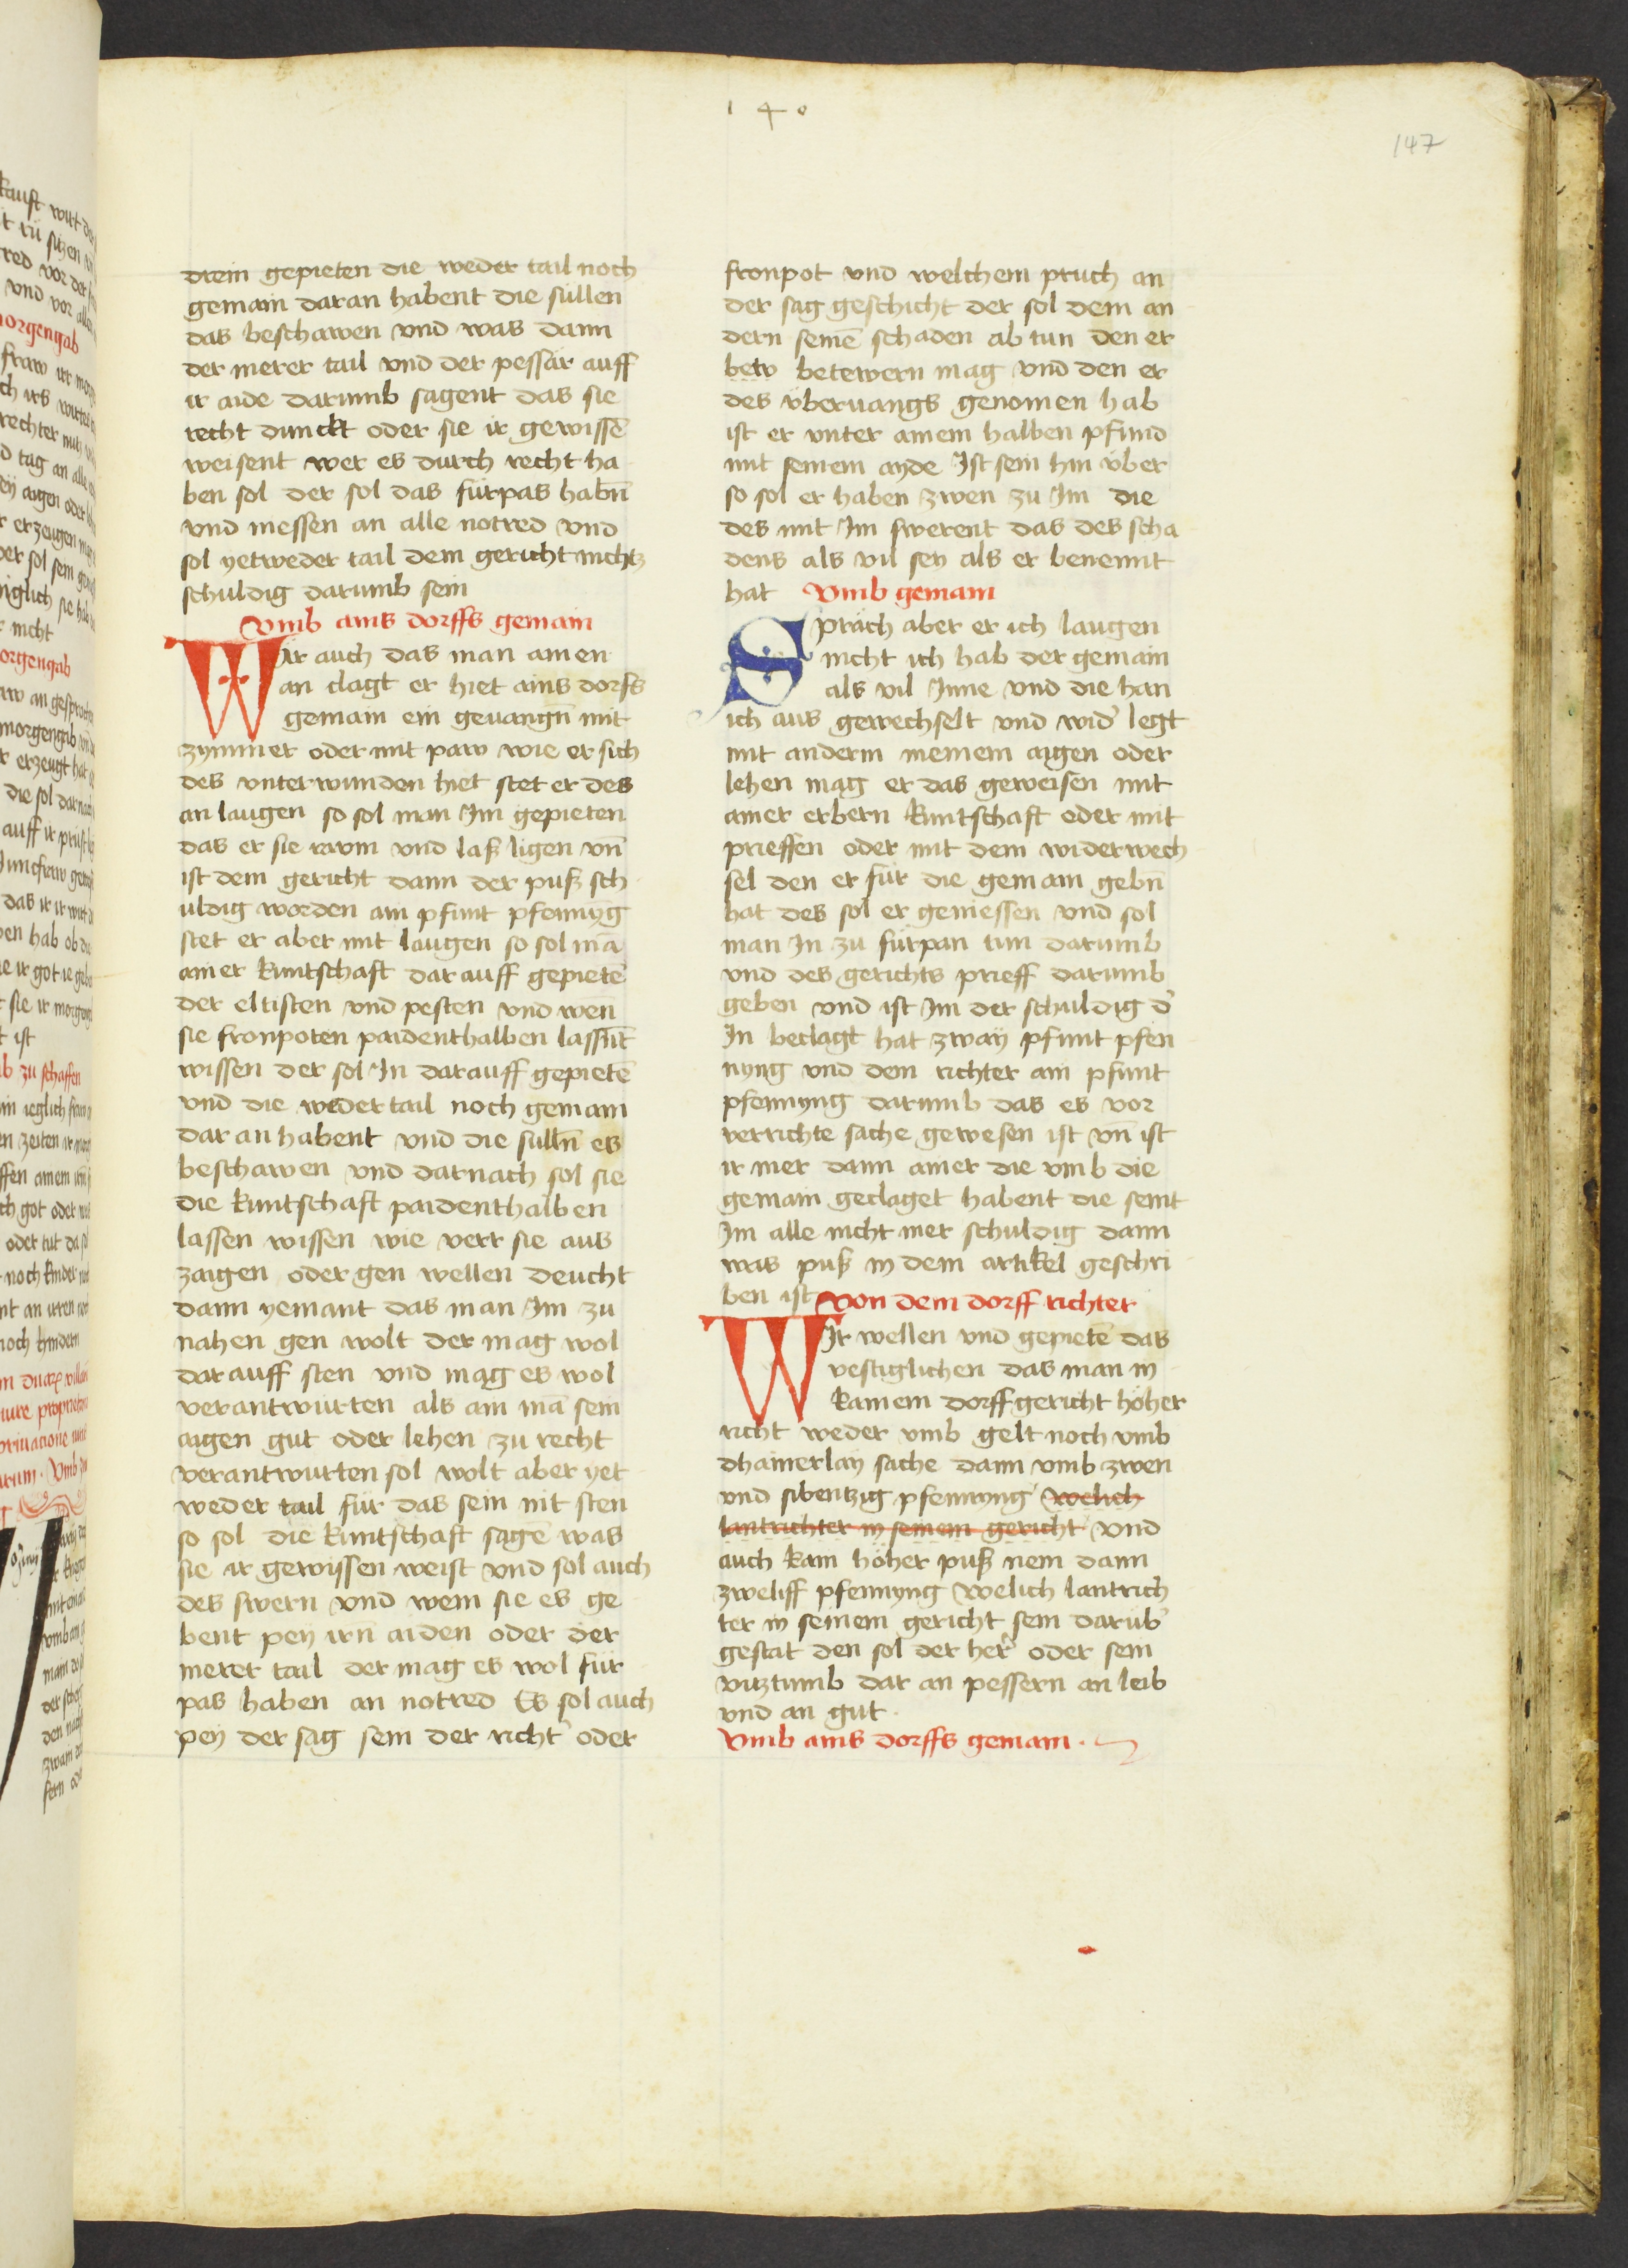 140
147
drein gepieten die weder tail noch
gemain daran habent die sullen
das beschawen vnd was dann
der merer tail vnd der pessär auff
ir aide darumb sagent das sie
recht dunckt oder sie ir gewissē
weisent wer es durch recht ha
ben sol der sol das fürpas habn̄
vnd niessen an alle notred vnd
sol yetweder tail dem gericht nichtz
schuldig darumb sein
Vmb ains dorffs gemain
Wär auch das man ainen
an clagt er hiet ains dorfs
gemain ein geuangn̄ mit
zymmer oder mit paw wie er sich
des vnterwunden hiet stet er des
an laugen so sol man Im gepieten
das er sie raum vnd laß ligen vn̄
ist dem gericht dann der puß sch
uldig worden ain pfunt pfennyg
stet er aber mit laugen so sol mā
ainer kuntschaft darauff gepietē
der eltisten vnd pesten vnd wen
sie fronpoten paidenthalben lassn̄t
wissen der sol In darauff gepietē
vnd die weder tail noch gemain
dar an habent vnd die sulln̄ es
beschawen vnd darnach sol sie
die kuntschaft paidenthalben
lassen wissen wie verr sie aus
zaigen oder gen wellen deucht
dann yemant das man Im zu
nahen gen wolt der mag wol
darauff sten vnd mag es wol
verantwurten als ain mā sein
aigen gut oder lehen zu recht
verantwurten sol wolt aber yet
weder tail für das sein nit sten
so sol die kuntschaft sagē was
sie ir gewyssen weist vnd sol auch
des swern vnd wem sie es ge
bent pey irn̄ aiden oder der
merer tail der mag es wol für
pas haben an notred Es sol auch
pey der sag sein der richt̾ oder
fronpot vnd welchem pruch an
der sag geschicht der sol dem an
dern seinē schaden ab tun den er
betw betewern mag vnd den er
des überuangs genomen hab
ist er vnter ainem halben pfund
mit seinem ayde Ist sein hin über
so sol er haben zwen zu Im die
des mit Im swerent das des scha
dens als vil sey als er benennt
hat Vmb gemain
Spräch aber er ich laugen
nicht ich hab der gemain
als vil Inne vnd die han
ich aus gewechselt vnd wid̾ legt
mit anderm meinem aigen oder
lehen mag er das geweisen mit
ainer erbern kuntschaft oder mit
prieffen oder mit dem widerwech
sel den er für die gemain gebn̄
hat des sol er geniessen vnd sol
man In zu fürpan tun darumb
vnd des gerichts prieff darumb
geben vnd ist Im der schuldig d̾
In beclagt hat zway pfunt pfen
nyng vnd dem richter ain pfunt
pfennyng darumb das es vor
verrichte sache gewesen ist vn̄ ist
ir mer dann ainer die vmb die
gemain geclaget habent die seint
Im alle nicht mer schuldig dann
was puß in dem artikel geschri
ben ist Von dem dorff richter
WIr wellen vnd gepietē das
vestiglichen das man in
kainem dorffgericht höher
richt weder vmb gelt noch vmb
dhainerlay sache dann vmb zwen
vnd sibentzig pfennyng welich
lantrichter in seinem gericht vnd
auch kain höher puß nem dann
zweliff pfennyng welich lantrich
ter in seinem gericht sein darüb̾
gestat den sol der her̾ oder sein
vitztumb dar an pessern an leib
vnd an gut.
Vmb ains dorffs gemain.